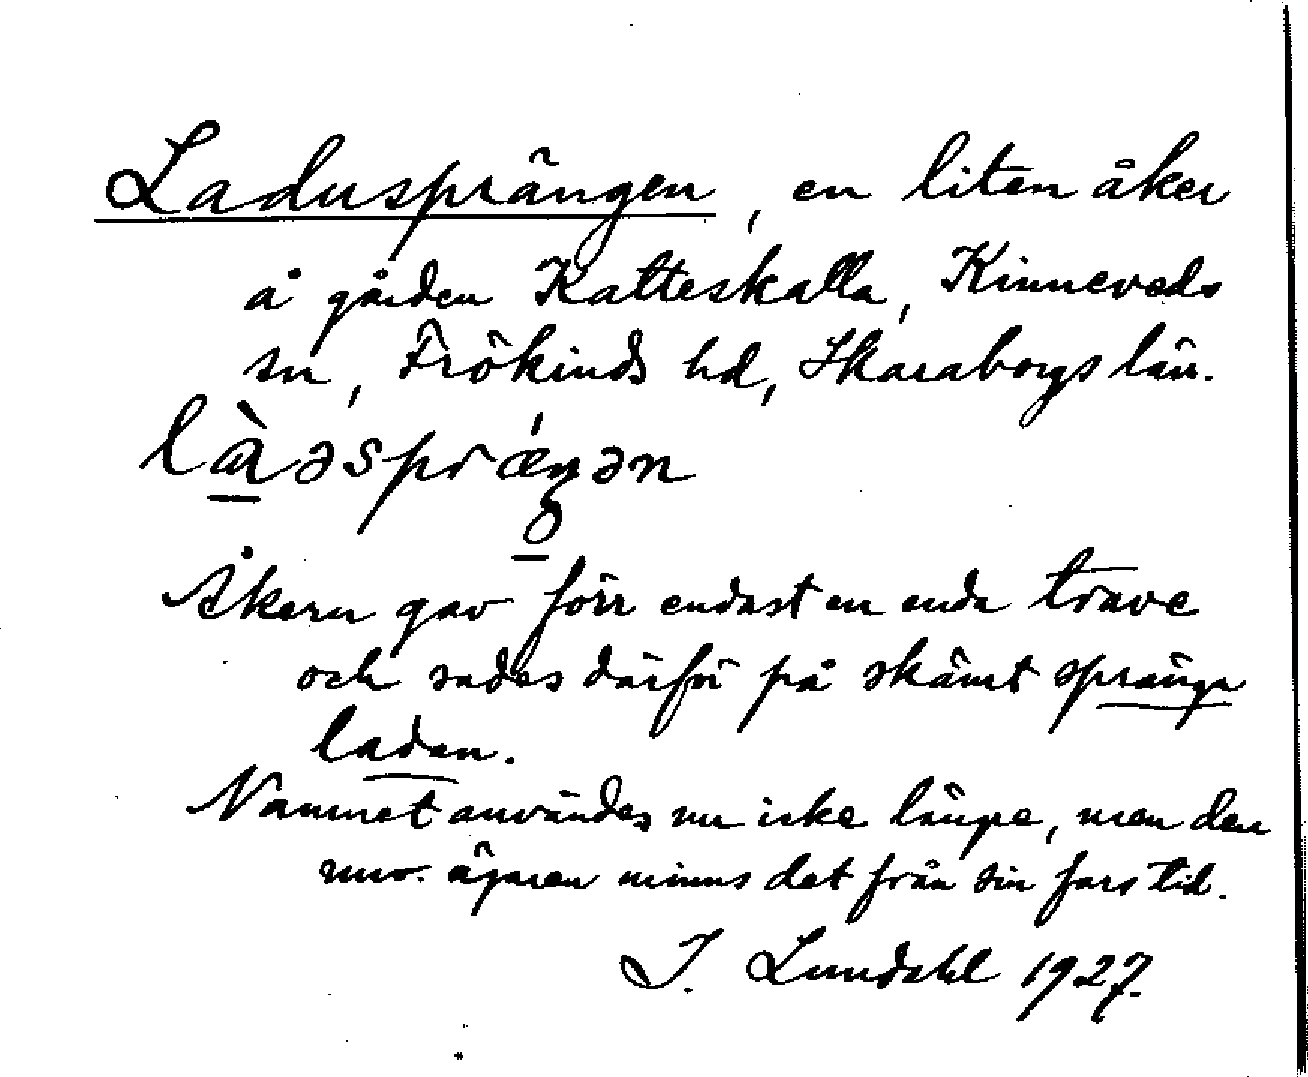 Ladusprängen, en liten åker
å gården Katteskalla, Kinneveds
sn, Frökinds hd, Skaraborgs län.
là̱əsprǽŋən
Åkern gav förr endast en enda trave
och sades därför på skämt spränga
ladan.
Namnet användes nu icke länge, men den
nuv. ägaren minns det från sin fars tid.
I. Lundahl 1927.